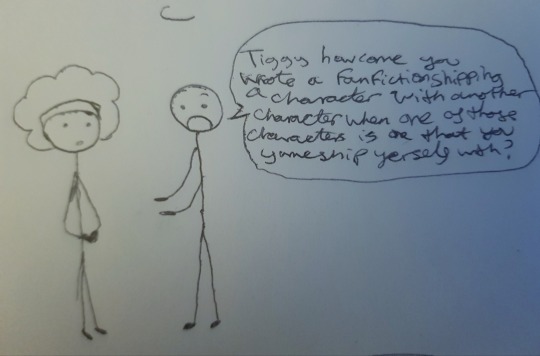 Tiggy howcome you
wrote a fanfiction shipping
a character with another
character when one of those
characters is one that you
yumeship yerself with?